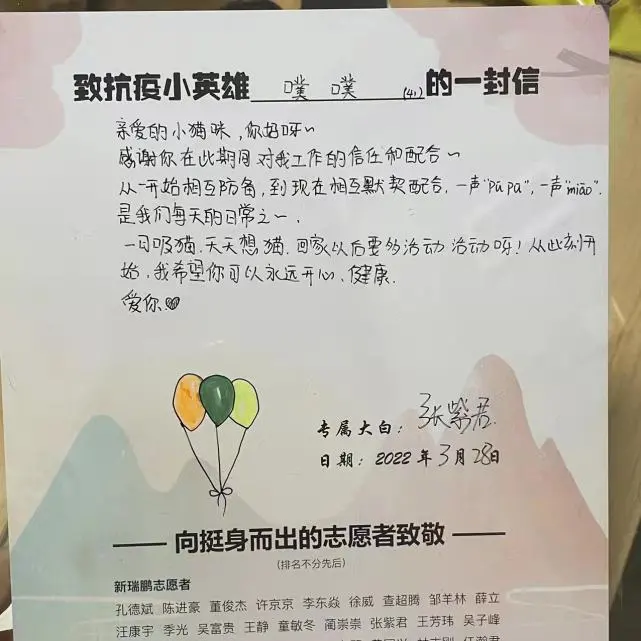 致抗疫小英雄 噗噗 (41) 的一封信
亲爱的小猫咪，你好呀~
感谢你在此期间对我工作的信任和配合~
从一开始相互防备，到现在相互默契配合，一声"pū pu"，一声"miāo"，
是我们每天的日常之一、
一日吸猫、天天想猫、回家以后要多活动 活动呀！从此刻开
始，我希望你可以永远开心、健康.
爱你
专属大白：张紫君
日期：2022年3月28日
向挺身而出的志愿者致敬
（排名不分先后）
新瑞鹏志愿者
孔德斌 陈进豪 董俊杰 许京京 李东焱 徐威 查超腾 邹羊林 薛立
汪康宇 季光 吴富贵 王静 童敏冬 蔺崇崇 张紫君 王芳玮 吴子峰